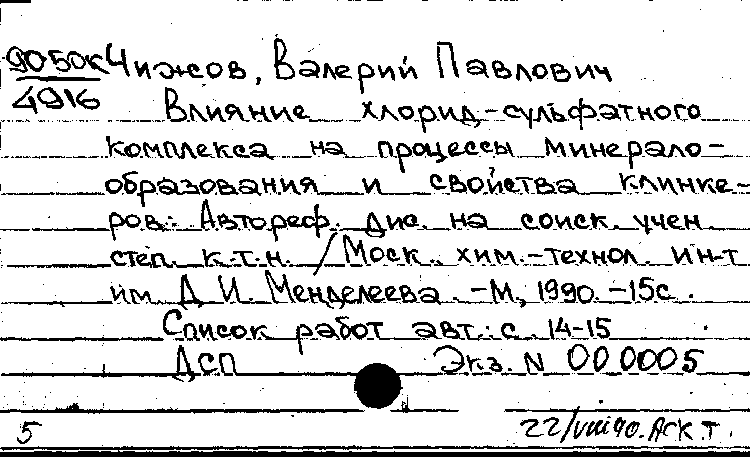 9050к Чижов, Валерий Павлович
4916 Влияние хлорид-сульфатного
комплекса на процессы минерало-
образования и свойства клинке-
ров: Автореф. дис. на соиск. учен.
степ. к.т.н. / Моск. хим.-технол. ин-т
им. Д.И. Менделеева. -М, 1990. -15с.
Список работ авт.: с. 14-15
ДСП Экз. N 000005
5 22/VIII90. АСК.Т.